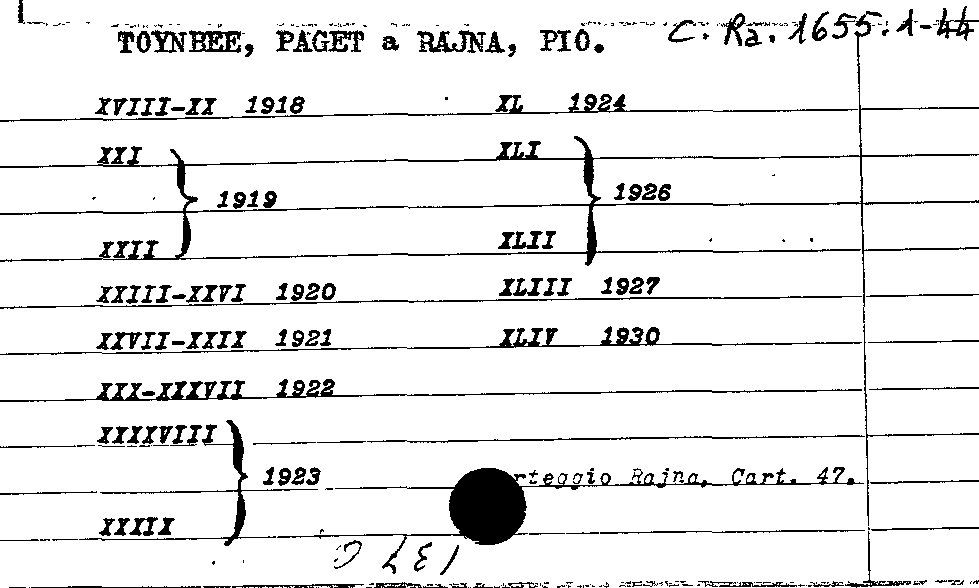 TOYNBEE, PAGET a RAJNA, PIO. C. Ra. 1655.1-44
XVIII-XX 1918
XXI
1919
XXII
XXIII-XXVI 1920
XXVII-XXIX 1921
XXX-XXXVII 1922
XXXXVIII
1923
XXXIX
XL 1924
XLI
1926
XLII
XLIII 1927
XLIV 1930
rteggio Rajna, Cart. 47.